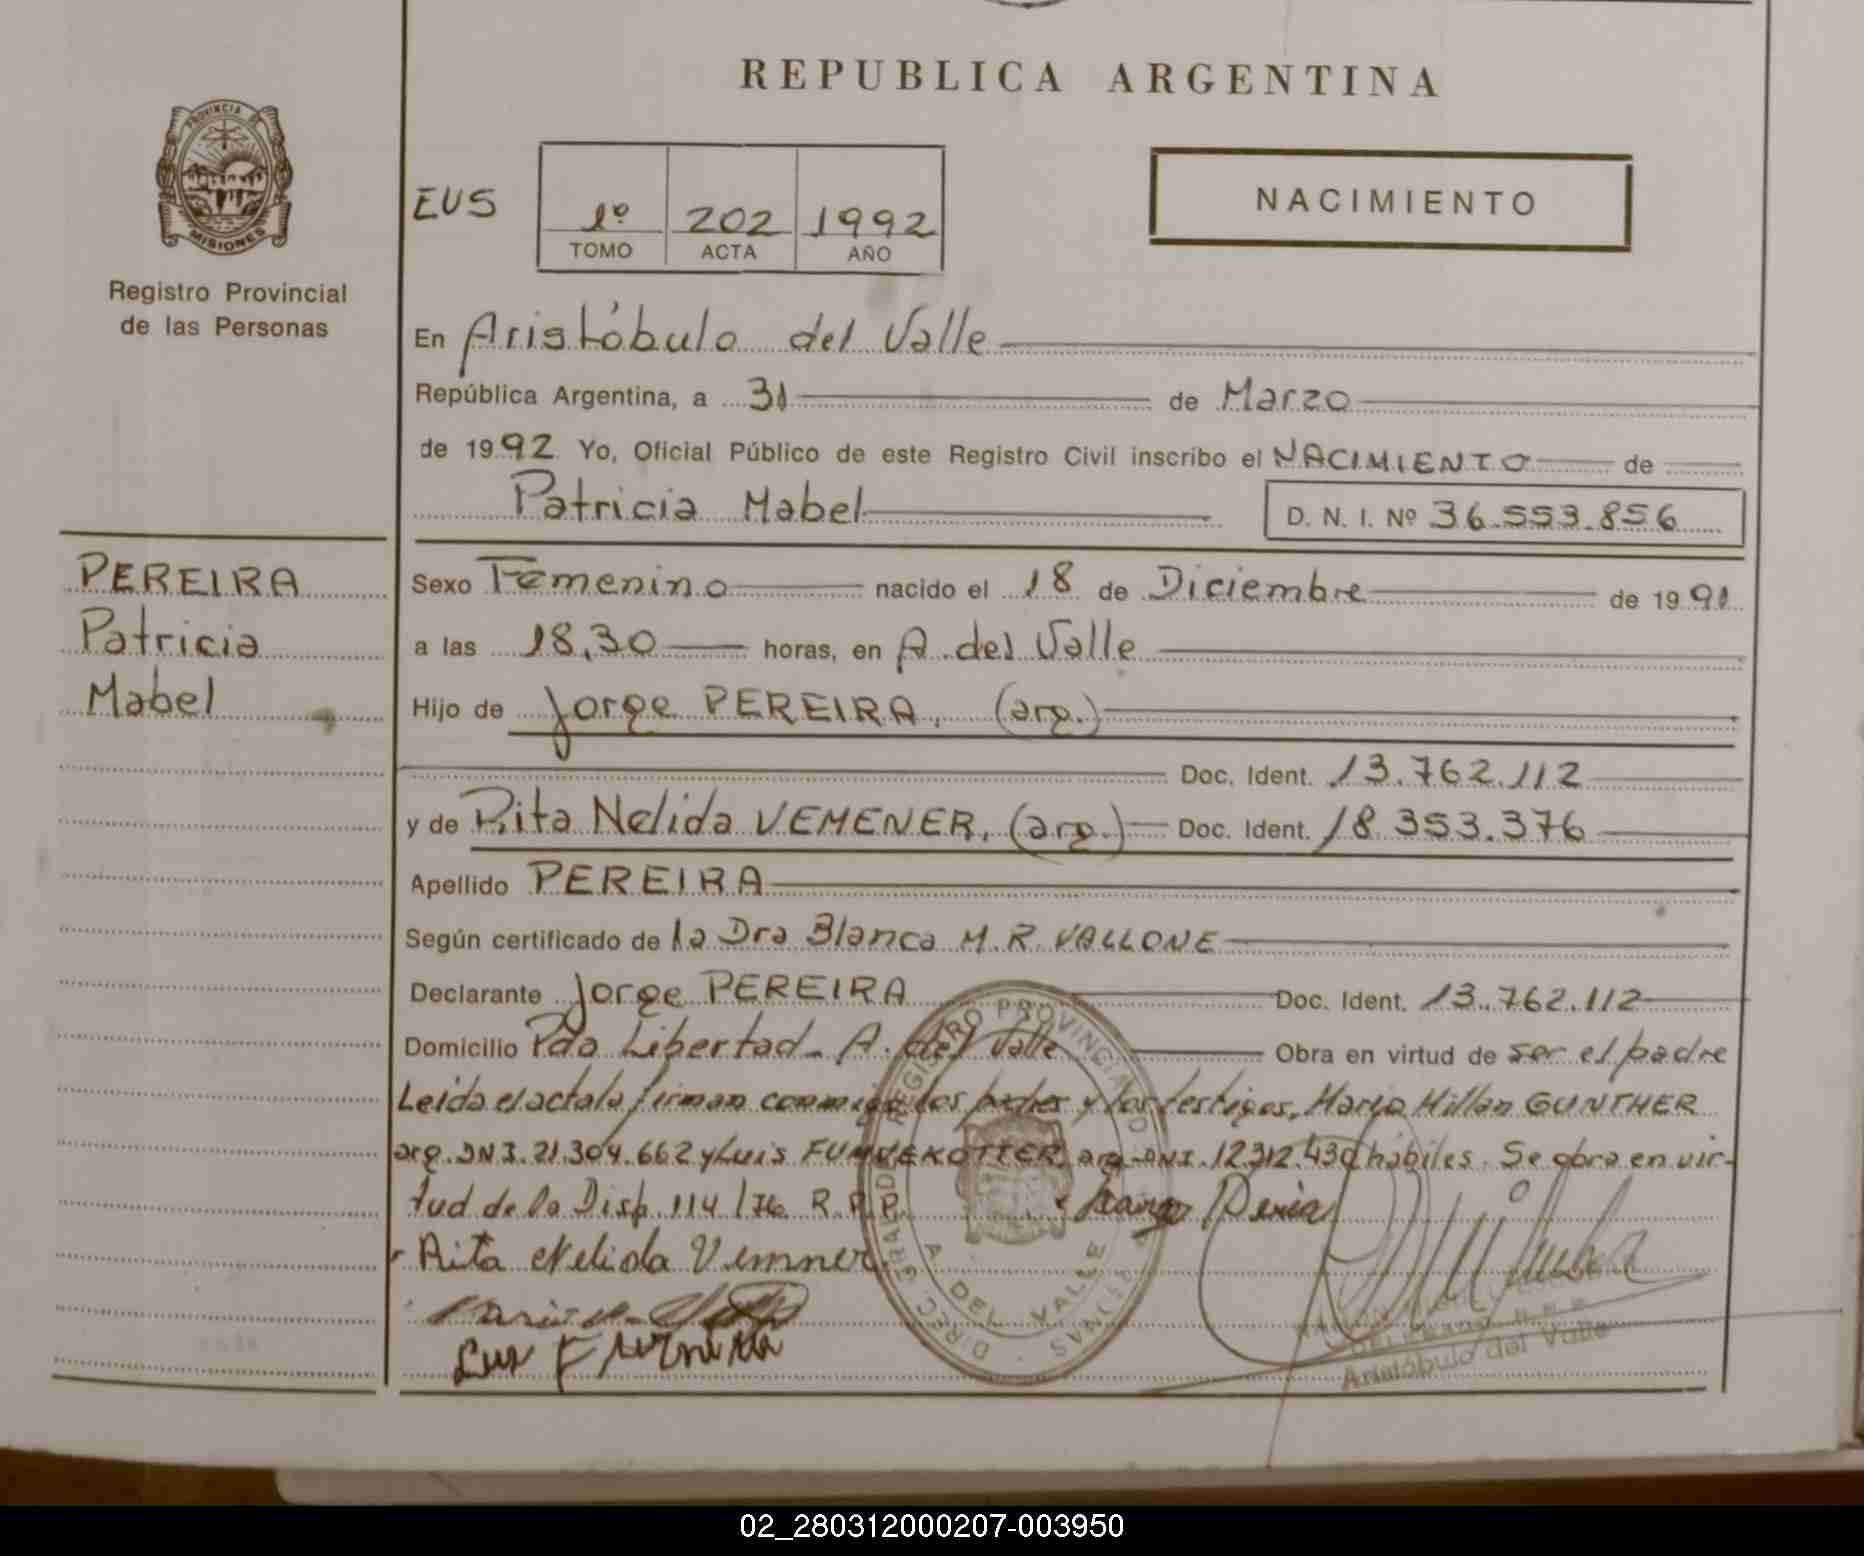 REPUBLICA ARGENTINA
PROVINCIA DE
MISIONES
Registro Provincial
de las Personas
EUS
1º 202 1992
TOMO ACTA AÑO
NACIMIENTO
En Aristóbulo del Valle
República Argentina, a 31 de Marzo
de 1992 Yo, Oficial Público de este Registro Civil inscribo el NACIMIENTO de
Patricia Mabel D. N. I. Nº 36.553.856
PEREIRA
Patricia
Mabel
Sexo Femenino nacido el 18 de Diciembre de 1991
a las 18,30 horas, en A. del Valle
Hijo de Jorge PEREIRA, (arg.)
Doc. Ident. 13.762.112
y de Rita Nelida VEMENER, (arg.) Doc. Ident. 18.353.376
Apellido PEREIRA
Según certificado de la Dra Blanca M. R. VALLONE
Declarante Jorge PEREIRA Doc. Ident. 13.762.112
Domicilio Pdo Libertad - A. del Valle Obra en virtud de ser el padre
Leida el acta la firman conmigo los padres y los testigos, Mario Millan GUNTHER
arg. DNI. 21.304.662 y Luis arg. DNI. 12.312.430 hábiles. Se obra en vir-
tud de la Disp. 114/76 R.P.P.
Rita Nelida Vemner
Luis
DIREC. GRAL. DE REGISTRO PROVINCIAL DE
A. DEL VALLE
Aristóbulo del Valle
02_280312000207-003950